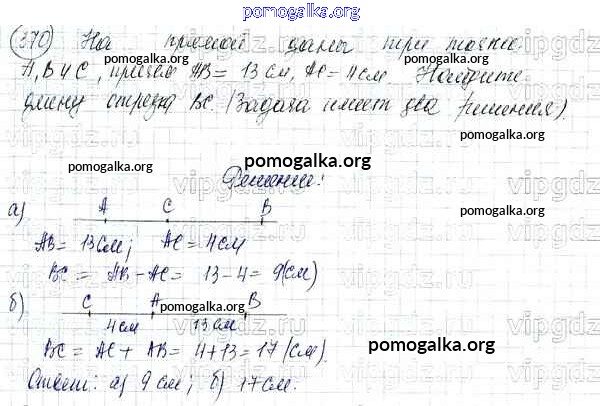 pomogalka.org
370 На прямой даны три точки
А, В и С, причем АВ = 13 см, АС = 4 см Найдите
длину отрезка ВС. (Задача имеет два решения).
pomogalka.org
pomogalka.org
pomogalka.org
Решение:
pomogalka.org
а) А С В
АВ = 13 см; АС = 4 см
ВС = АВ - АС = 13 - 4 = 9 (см)
б) С А В
pomogalka.org
4 см 13 см
ВС = АС + АВ = 4 + 13 = 17 (см).
pomogalka.org
Ответ: а) 9 см; б) 17 см.